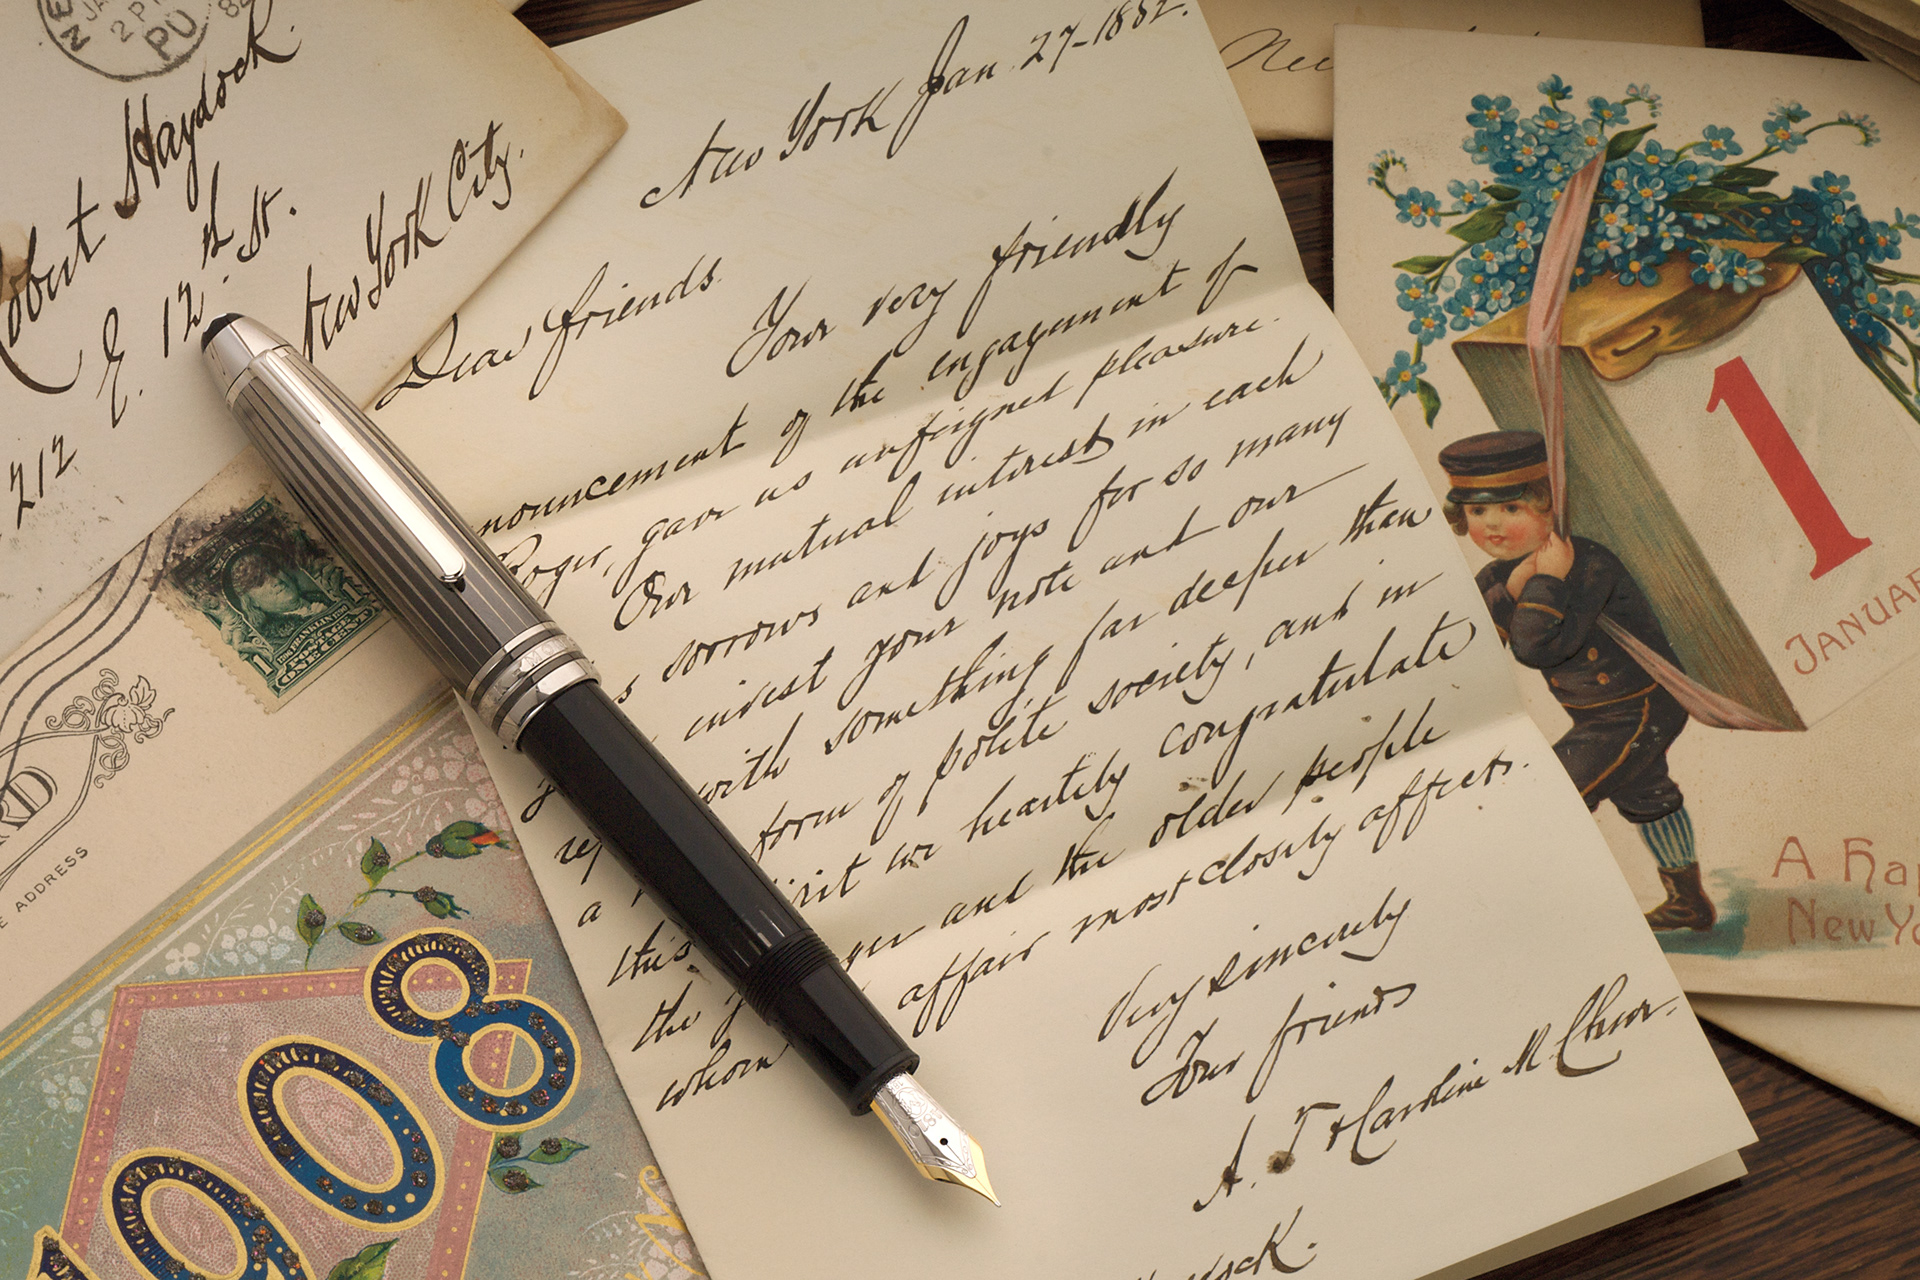 2 P
82
Robert Haydock.
212 E. 12th St.
New York City.
New York Jan. 27-1882.
Dear friends.
Your very friendly
nouncement of the engagement of
Roger, gave us unfeigned pleasure.
Our mutual interest in each
s sorrows and joys for so many
invest your note and our
with something far deeper than
form of polite society, and in
a
we heartily congratulate
this
and the older people
the
affair most closely affects.
whom
Very sincerely
Your friends
A. T & Caroline M
1
FRANKLIN
POSTAGE
ONE CENT
1
E ADDRESS
1908
1
JANUAR
A Hap
New Ye